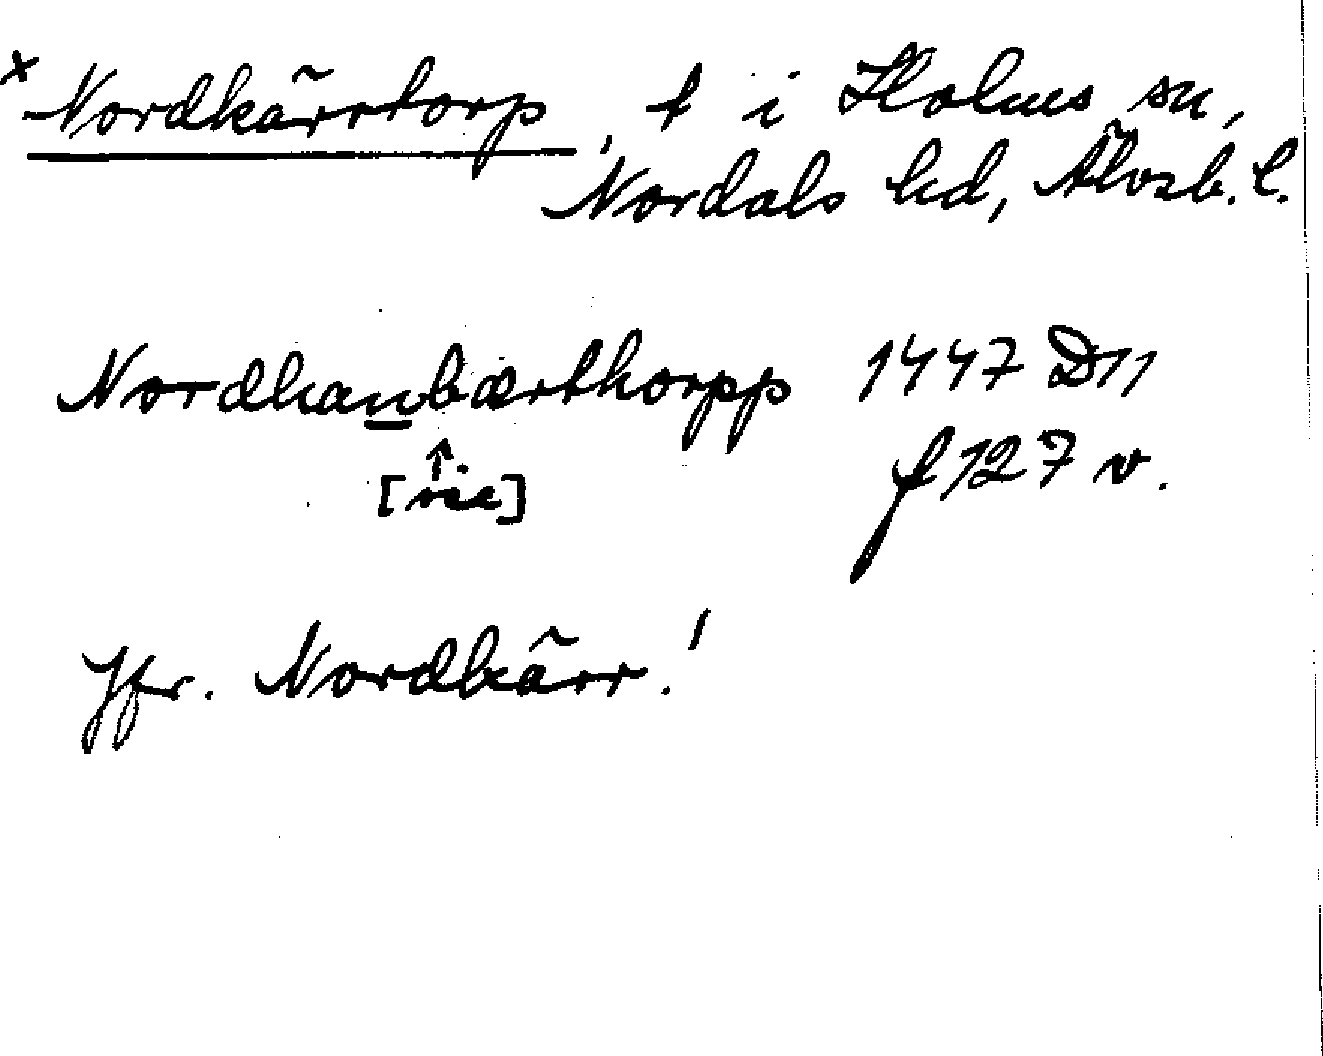 x Nordkärrtorp, t i Holms sn,
Nordals hd, Älvsb. l.
Nordhanbærthorpp 1447 D11
[sic] f 127 v.
Jfr. Nordkärr!